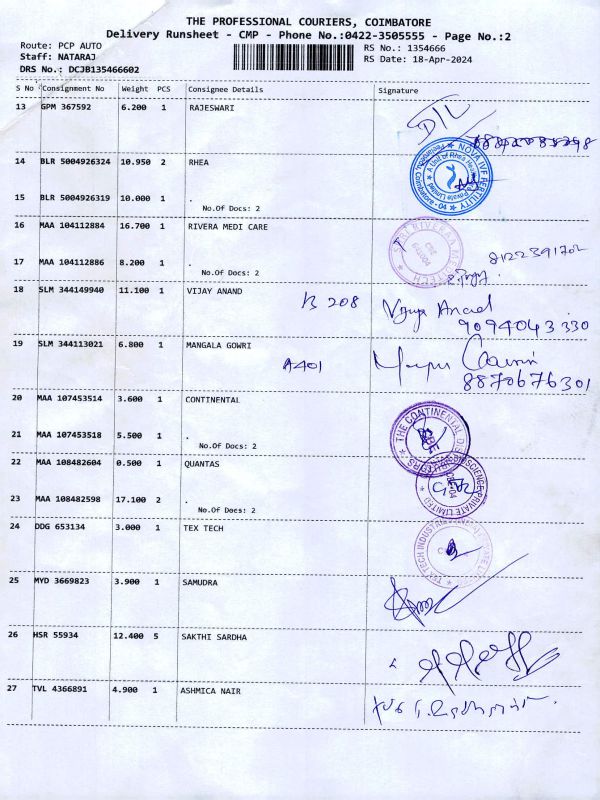 THE PROFESSIONAL COURIERS, COIMBATORE
Delivery Runsheet - CMP - Phone No.:0422-3505555 - Page No.:2
Route: PCP AUTO
Staff: NATARAJ
DRS No.: DCJB135466602
RS No.: 1354666
RS Date: 18-Apr-2024
S No Consignment No Weight PCS Consignee Details Signature
13 GPM 367592 6.200 1 RAJESWARI
14 BLR 5004926324 10.950 2 RHEA
NOVA IVF FERTILITY
15 BLR 5004926319 10.000 1 .
No.Of Docs: 2
16 MAA 104112884 16.700 1 RIVERA MEDI CARE
8122391702
17 MAA 104112886 8.200 1 .
No.Of Docs: 2
18 SLM 344149940 11.100 1 VIJAY ANAND B 208 Vijay Anand
9094043330
19 SLM 344113021 6.800 1 MANGALA GOWRI A401
8870676301
20 MAA 107453514 3.600 1 CONTINENTAL
THE CONTINENTAL
21 MAA 107453518 5.500 1 .
No.Of Docs: 2
22 MAA 108482604 0.500 1 QUANTAS
PRIVATE LIMITED
23 MAA 108482598 17.100 2 .
No.Of Docs: 2
24 DDG 653134 3.000 1 TEX TECH
TEX TECH INDUSTRIES
25 MYD 3669823 3.900 1 SAMUDRA
26 HSR 55934 12.400 5 SAKTHI SARDHA
27 TVL 4366891 4.900 1 ASHMICA NAIR